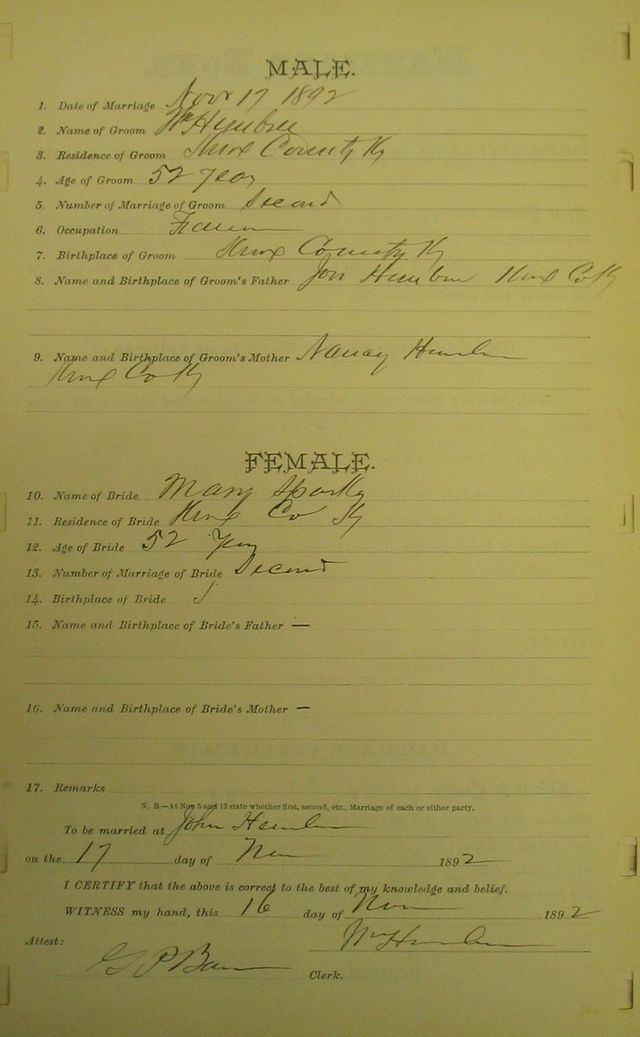 MALE.
1. Date of Marriage Nov 17 1892
2. Name of Groom Wm
3. Residence of Groom Knox County Ky
4. Age of Groom 52 year
5. Number of Marriage of Groom Second
6. Occupation Farmer
7. Birthplace of Groom Knox County Ky
8. Name and Birthplace of Groom's Father Knox Co Ky
9. Name and Birthplace of Groom's Mother Nancy
Knox Co Ky
FEMALE.
10. Name of Bride Mary Sparks
11. Residence of Bride Knox Co Ky
12. Age of Bride 52 Year
13. Number of Marriage of Bride Second
14. Birthplace of Bride
15. Name and Birthplace of Bride's Father —
16. Name and Birthplace of Bride's Mother —
17. Remarks
N. B.—At Nos 5 and 13 state whether first, second, etc., Marriage of each or either party.
To be married at John
on the 17 day of Nov 1892
I CERTIFY that the above is correct to the best of my knowledge and belief.
WITNESS my hand, this 16 day of Nov 1892
Attest: Wm
G P Clerk.